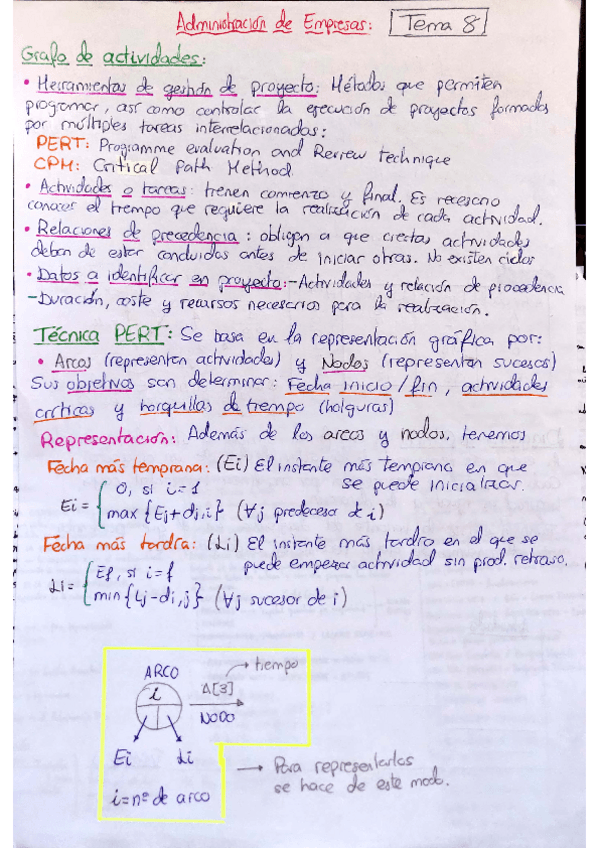 Administración de Empresas: Tema 8
Grafo de actividades:
• Herramientas de gestión de proyecto: Métodos que permiten
programar, así como controlar la ejecución de proyectos formados
por múltiples tareas interrelacionadas:
PERT: Programme evaluation and Review technique
CPM: Critical Path Method
• Actividades o tareas: tienen comienzo y final. Es necesario
conocer el tiempo que requiere la realización de cada actividad.
• Relaciones de precedencia: obligan a que ciertas actividades
deban de estar concluidas antes de iniciar otras. No existen ciclos
• Datos a identificar en proyecto: -Actividades y relación de procedencia
-Duración, coste y recursos necesarios para la realización.
Técnica PERT: Se basa en la representación gráfica por:
• Arcos (representan actividades) y Nodos (representan sucesos)
Sus objetivos son determinar: Fecha inicio/fin, actividades
críticas y horquillas de tiempo (holguras)
Representación: Además de los arcos y nodos, tenemos
Fecha más temprana: (Ei) El instante más temprano en que
se puede inicializar.
Ei = { 0, si i=1
max {Ej+dj,i} (∀j predecesor de i)
Fecha más tardía: (Li) El instante más tardío en el que se
puede empezar actividad sin prod. retraso.
Li = { Ef, si i=f
min {Lj-di,j} (∀j sucesor de i)
ARCO
tiempo
i
A[3]
NODO
Ei Li
i=nº de arco
→ Para representarlos
se hace de este modo.